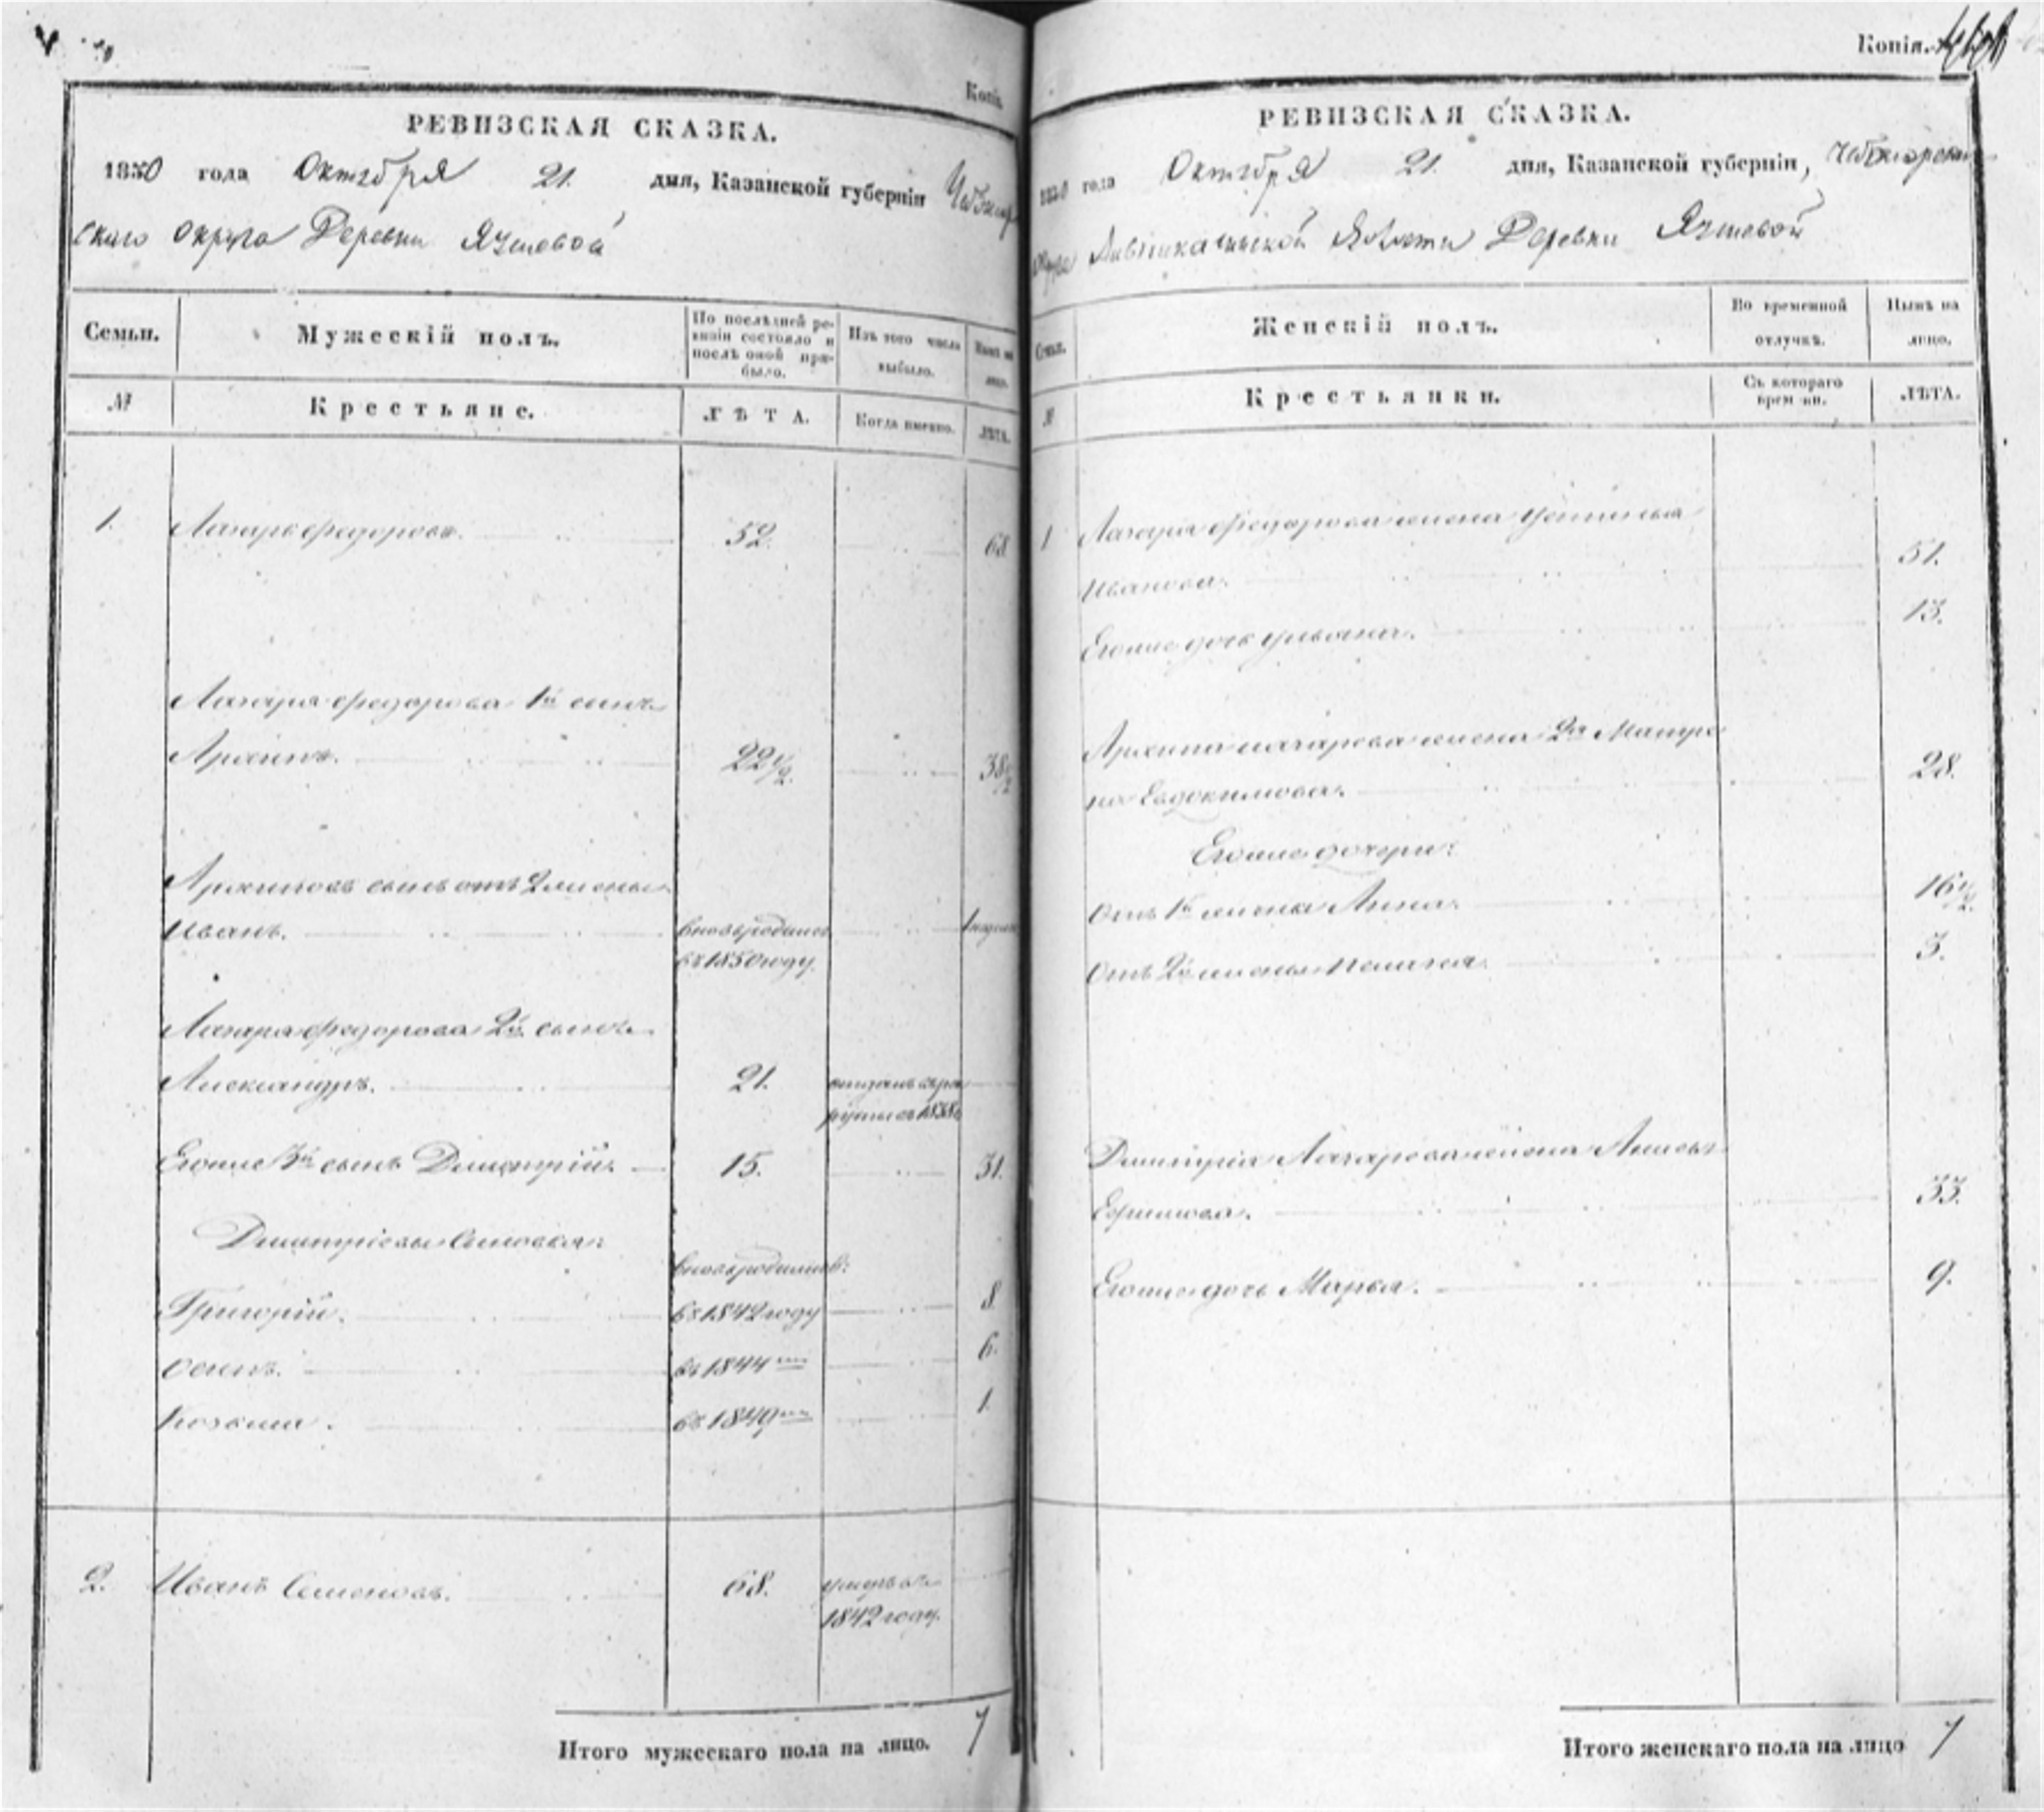 Копія.
РЕВИЗСКАЯ СКАЗКА.
1850 года Октября 21. дня, Казанской губерніи Чебокар
скаго округа Деревни
Семьи.
Мужескій полъ.
По послѣдней ре-
визіи состояло и
послѣ оной при-
было.
Изъ того числа
выбыло.
Нынѣ на
лицо.
№
Крестьяне.
ЛѢТА.
Когда именно.
ЛѢТА.
1. Лазарь Федоровъ. 52. 68
Лазаря Федорова 1й сынъ
Архипъ. 22 1/2. 38 1/2
Архиповъ сынъ отъ 2 жены
Иванъ. вновь родился
въ 1850 году.
Лазаря Федорова 2й сынъ
Александръ. 21. отданъ въ рек
руты въ 1838
Егоже 3й сынъ Димитрій. 15. 31.
Димитріевы сыновья:
вновь родились:
Григорій. въ 1842 году 8.
Осипъ. въ 1844 6.
Козьма. въ 1849 1.
2. Иванъ Семеновъ. 68. умеръ въ
1842 году.
Итого мужескаго пола на лицо. 7
Копія.
РЕВИЗСКАЯ СКАЗКА.
1850 года Октября 21. дня, Казанской губерніи,
Волости Деревни
Семьи.
Женскій полъ.
Во временной
отлучкѣ.
Нынѣ на
лицо.
№
Крестьянки.
Съ котораго
времени.
ЛѢТА.
1 Лазаря Федорова жена Устинья
Иванова. 51.
Егоже дочь Ульяна. 13.
Архипа Лазарева жена 2я Матре
на Евдокимова. 28.
Егоже дочери:
Отъ 1й жены Анна. 16 1/2.
Отъ 2й жены 3.
Димитрія Лазарева жена
Ефимова. 33.
Егоже дочь Марья. 9.
Итого женскаго пола на лицо 7